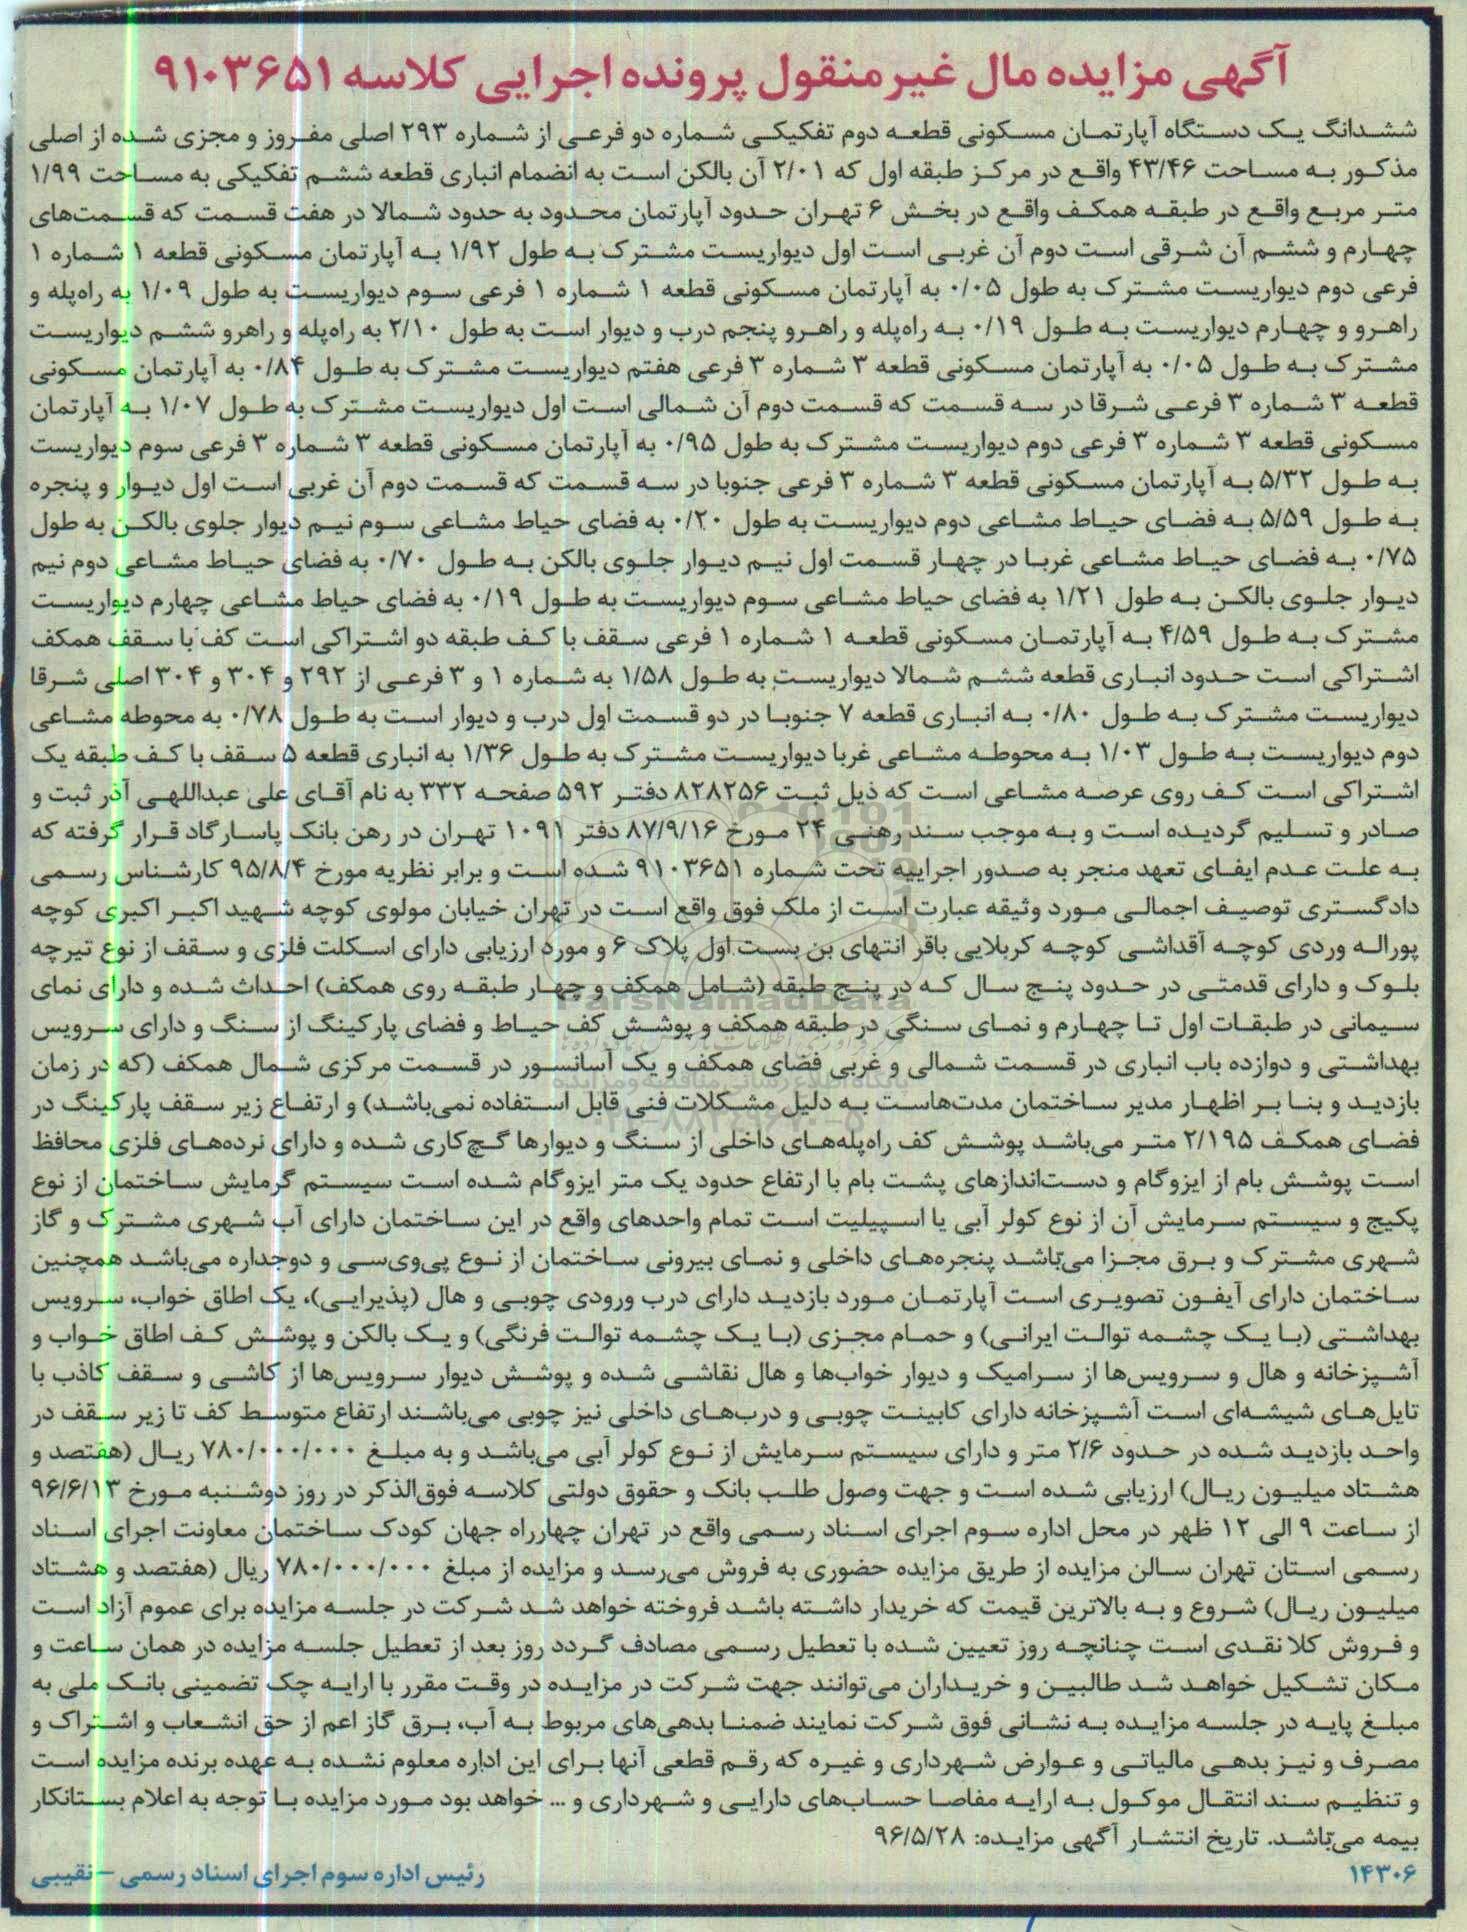 آگهی مزایده مال غیرمنقول پرونده اجرایی کلاسه ۹۱۰۳۶۵۱
ششدانگ یک دستگاه آپارتمان مسکونی قطعه دوم تفکیکی شماره دو فرعی از شماره ۲۹۳ اصلی مفروز و مجزی شده از اصلی
مذکور به مساحت ۴۳/۴۶ واقع در مرکز طبقه اول که ۲/۰۱ آن بالکن است به انضمام انباری قطعه ششم تفکیکی به مساحت ۱/۹۹
متر مربع واقع در طبقه همکف واقع در بخش ۶ تهران حدود آپارتمان محدود به حدود شمالا در هفت قسمت که قسمت‌های
چهارم و ششم آن شرقی است دوم آن غربی است اول دیواریست مشترک به طول ۱/۹۲ به آپارتمان مسکونی قطعه ۱ شماره ۱
فرعی دوم دیواریست مشترک به طول ۰/۰۵ به آپارتمان مسکونی قطعه ۱ شماره ۱ فرعی سوم دیواریست به طول ۱/۰۹ به راه‌پله و
راهرو و چهارم دیواریست به طول ۰/۱۹ به راه‌پله و راهرو پنجم درب و دیوار است به طول ۲/۱۰ به راه‌پله و راهرو ششم دیواریست
مشترک به طول ۰/۰۵ به آپارتمان مسکونی قطعه ۳ شماره ۳ فرعی هفتم دیواریست مشترک به طول ۰/۸۴ به آپارتمان مسکونی
قطعه ۳ شماره ۳ فرعی شرقا در سه قسمت که قسمت دوم آن شمالی است اول دیواریست مشترک به طول ۱/۰۷ به آپارتمان
مسکونی قطعه ۳ شماره ۳ فرعی دوم دیواریست مشترک به طول ۰/۹۵ به آپارتمان مسکونی قطعه ۳ شماره ۳ فرعی سوم دیواریست
به طول ۵/۳۲ به آپارتمان مسکونی قطعه ۳ شماره ۳ فرعی جنوبا در سه قسمت که قسمت دوم آن غربی است اول دیوار و پنجره
به طول ۵/۵۹ به فضای حیاط مشاعی دوم دیواریست به طول ۰/۲۰ به فضای حیاط مشاعی سوم نیم دیوار جلوی بالکن به طول
۰/۷۵ به فضای حیاط مشاعی غربا در چهار قسمت اول نیم دیوار جلوی بالکن به طول ۰/۷۰ به فضای حیاط مشاعی دوم نیم
دیوار جلوی بالکن به طول ۱/۲۱ به فضای حیاط مشاعی سوم دیواریست به طول ۰/۱۹ به فضای حیاط مشاعی چهارم دیواریست
مشترک به طول ۴/۵۹ به آپارتمان مسکونی قطعه ۱ شماره ۱ فرعی سقف با کف طبقه دو اشتراکی است کف با سقف همکف
اشتراکی است حدود انباری قطعه ششم شمالا دیواریست به طول ۱/۵۸ به شماره ۱ و ۳ فرعی از ۲۹۲ و ۳۰۴ و ۳۰۴ اصلی شرقا
دیواریست مشترک به طول ۰/۸۰ به انباری قطعه ۷ جنوبا در دو قسمت اول درب و دیوار است به طول ۰/۷۸ به محوطه مشاعی
دوم دیواریست به طول ۱/۰۳ به محوطه مشاعی غربا دیواریست مشترک به طول ۱/۳۶ به انباری قطعه ۵ سقف با کف طبقه یک
اشتراکی است کف روی عرصه مشاعی است که ذیل ثبت ۸۲۸۲۵۶ دفتر ۵۹۲ صفحه ۳۳۲ به نام آقای علی عبداللهی آذر ثبت و
صادر و تسلیم گردیده است و به موجب سند رهنی ۲۴ مورخ ۸۷/۹/۱۶ دفتر ۱۰۹۱ تهران در رهن بانک پاسارگاد قرار گرفته که
به علت عدم ایفای تعهد منجر به صدور اجراییه تحت شماره ۹۱۰۳۶۵۱ شده است و برابر نظریه مورخ ۹۵/۸/۴ کارشناس رسمی
دادگستری توصیف اجمالی مورد وثیقه عبارت است از ملک فوق واقع است در تهران خیابان مولوی کوچه شهید اکبر اکبری کوچه
پوراله وردی کوچه آقداشی کوچه کربلایی باقر انتهای بن بست اول پلاک ۶ و مورد ارزیابی دارای اسکلت فلزی و سقف از نوع تیرچه
بلوک و دارای قدمتی در حدود پنج سال که در پنج طبقه (شامل همکف و چهار طبقه روی همکف) احداث شده و دارای نمای
سیمانی در طبقات اول تا چهارم و نمای سنگی در طبقه همکف و پوشش کف حیاط و فضای پارکینگ از سنگ و دارای سرویس
بهداشتی و دوازده باب انباری در قسمت شمالی و غربی فضای همکف و یک آسانسور در قسمت مرکزی شمال همکف (که در زمان
بازدید و بنا بر اظهار مدیر ساختمان مدت‌هاست به دلیل مشکلات فنی قابل استفاده نمی‌باشد) و ارتفاع زیر سقف پارکینگ در
فضای همکف ۲/۱۹۵ متر می‌باشد پوشش کف راه‌پله‌های داخلی از سنگ و دیوارها گچ‌کاری شده و دارای نرده‌های فلزی محافظ
است پوشش بام از ایزوگام و دست‌اندازهای پشت بام با ارتفاع حدود یک متر ایزوگام شده است سیستم گرمایش ساختمان از نوع
پکیج و سیستم سرمایش آن از نوع کولر آبی یا اسپیلیت است تمام واحدهای واقع در این ساختمان دارای آب شهری مشترک و گاز
شهری مشترک و برق مجزا می‌باشد پنجره‌های داخلی و نمای بیرونی ساختمان از نوع پی‌وی‌سی و دوجداره می‌باشد همچنین
ساختمان دارای آیفون تصویری است آپارتمان مورد بازدید دارای درب ورودی چوبی و هال (پذیرایی)، یک اطاق خواب، سرویس
بهداشتی (با یک چشمه توالت ایرانی) و حمام مجزی (با یک چشمه توالت فرنگی) و یک بالکن و پوشش کف اطاق خواب و
آشپزخانه و هال و سرویس‌ها از سرامیک و دیوار خواب‌ها و هال نقاشی شده و پوشش دیوار سرویس‌ها از کاشی و سقف کاذب با
تایل‌های شیشه‌ای است آشپزخانه دارای کابینت چوبی و درب‌های داخلی نیز چوبی می‌باشند ارتفاع متوسط کف تا زیر سقف در
واحد بازدید شده در حدود ۲/۶ متر و دارای سیستم سرمایش از نوع کولر آبی می‌باشد و به مبلغ ۷۸۰/۰۰۰/۰۰۰ ریال (هفتصد و
هشتاد میلیون ریال) ارزیابی شده است و جهت وصول طلب بانک و حقوق دولتی کلاسه فوق‌الذکر در روز دوشنبه مورخ ۹۶/۶/۱۳
از ساعت ۹ الی ۱۲ ظهر در محل اداره سوم اجرای اسناد رسمی واقع در تهران چهارراه جهان کودک ساختمان معاونت اجرای اسناد
رسمی استان تهران سالن مزایده از طریق مزایده حضوری به فروش می‌رسد و مزایده از مبلغ ۷۸۰/۰۰۰/۰۰۰ ریال (هفتصد و هشتاد
میلیون ریال) شروع و به بالاترین قیمت که خریدار داشته باشد فروخته خواهد شد شرکت در جلسه مزایده برای عموم آزاد است
و فروش کلا نقدی است چنانچه روز تعیین شده با تعطیل رسمی مصادف گردد روز بعد از تعطیل جلسه مزایده در همان ساعت و
مکان تشکیل خواهد شد طالبین و خریداران می‌توانند جهت شرکت در مزایده در وقت مقرر با ارایه چک تضمینی بانک ملی به
مبلغ پایه در جلسه مزایده به نشانی فوق شرکت نمایند ضمنا بدهی‌های مربوط به آب، برق گاز اعم از حق انشعاب و اشتراک و
مصرف و نیز بدهی مالیاتی و عوارض شهرداری و غیره که رقم قطعی آنها برای این اداره معلوم نشده به عهده برنده مزایده است
و تنظیم سند انتقال موکول به ارایه مفاصا حساب‌های دارایی و شهرداری و ... خواهد بود مورد مزایده با توجه به اعلام بستانکار
بیمه می‌باشد. تاریخ انتشار آگهی مزایده: ۹۶/۵/۲۸
۱۴۳۰۶ رئیس اداره سوم اجرای اسناد رسمی – نقیبی
ParsNamadData
پایگاه اطلاع رسانی مناقصه و مزایده